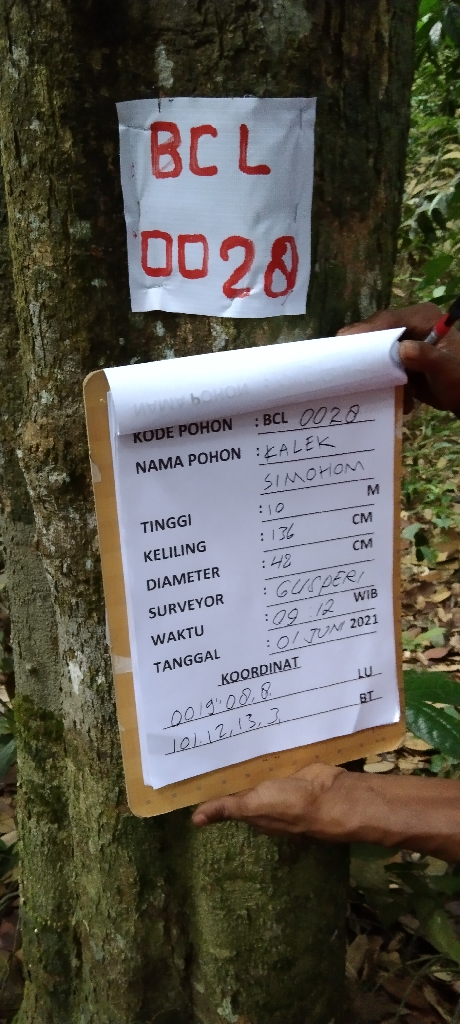 BCL
0028
KODE POHON : BCL 0028
NAMA POHON : KALEK
SIMOHOM
TINGGI : 10 M
KELILING : 136 CM
DIAMETER : 48 CM
SURVEYOR : GUSPERI
WAKTU : 09 12 WIB
TANGGAL : 01 JUNI 2021
KOORDINAT
0019".08,8 LU
101.12,13.3 BT